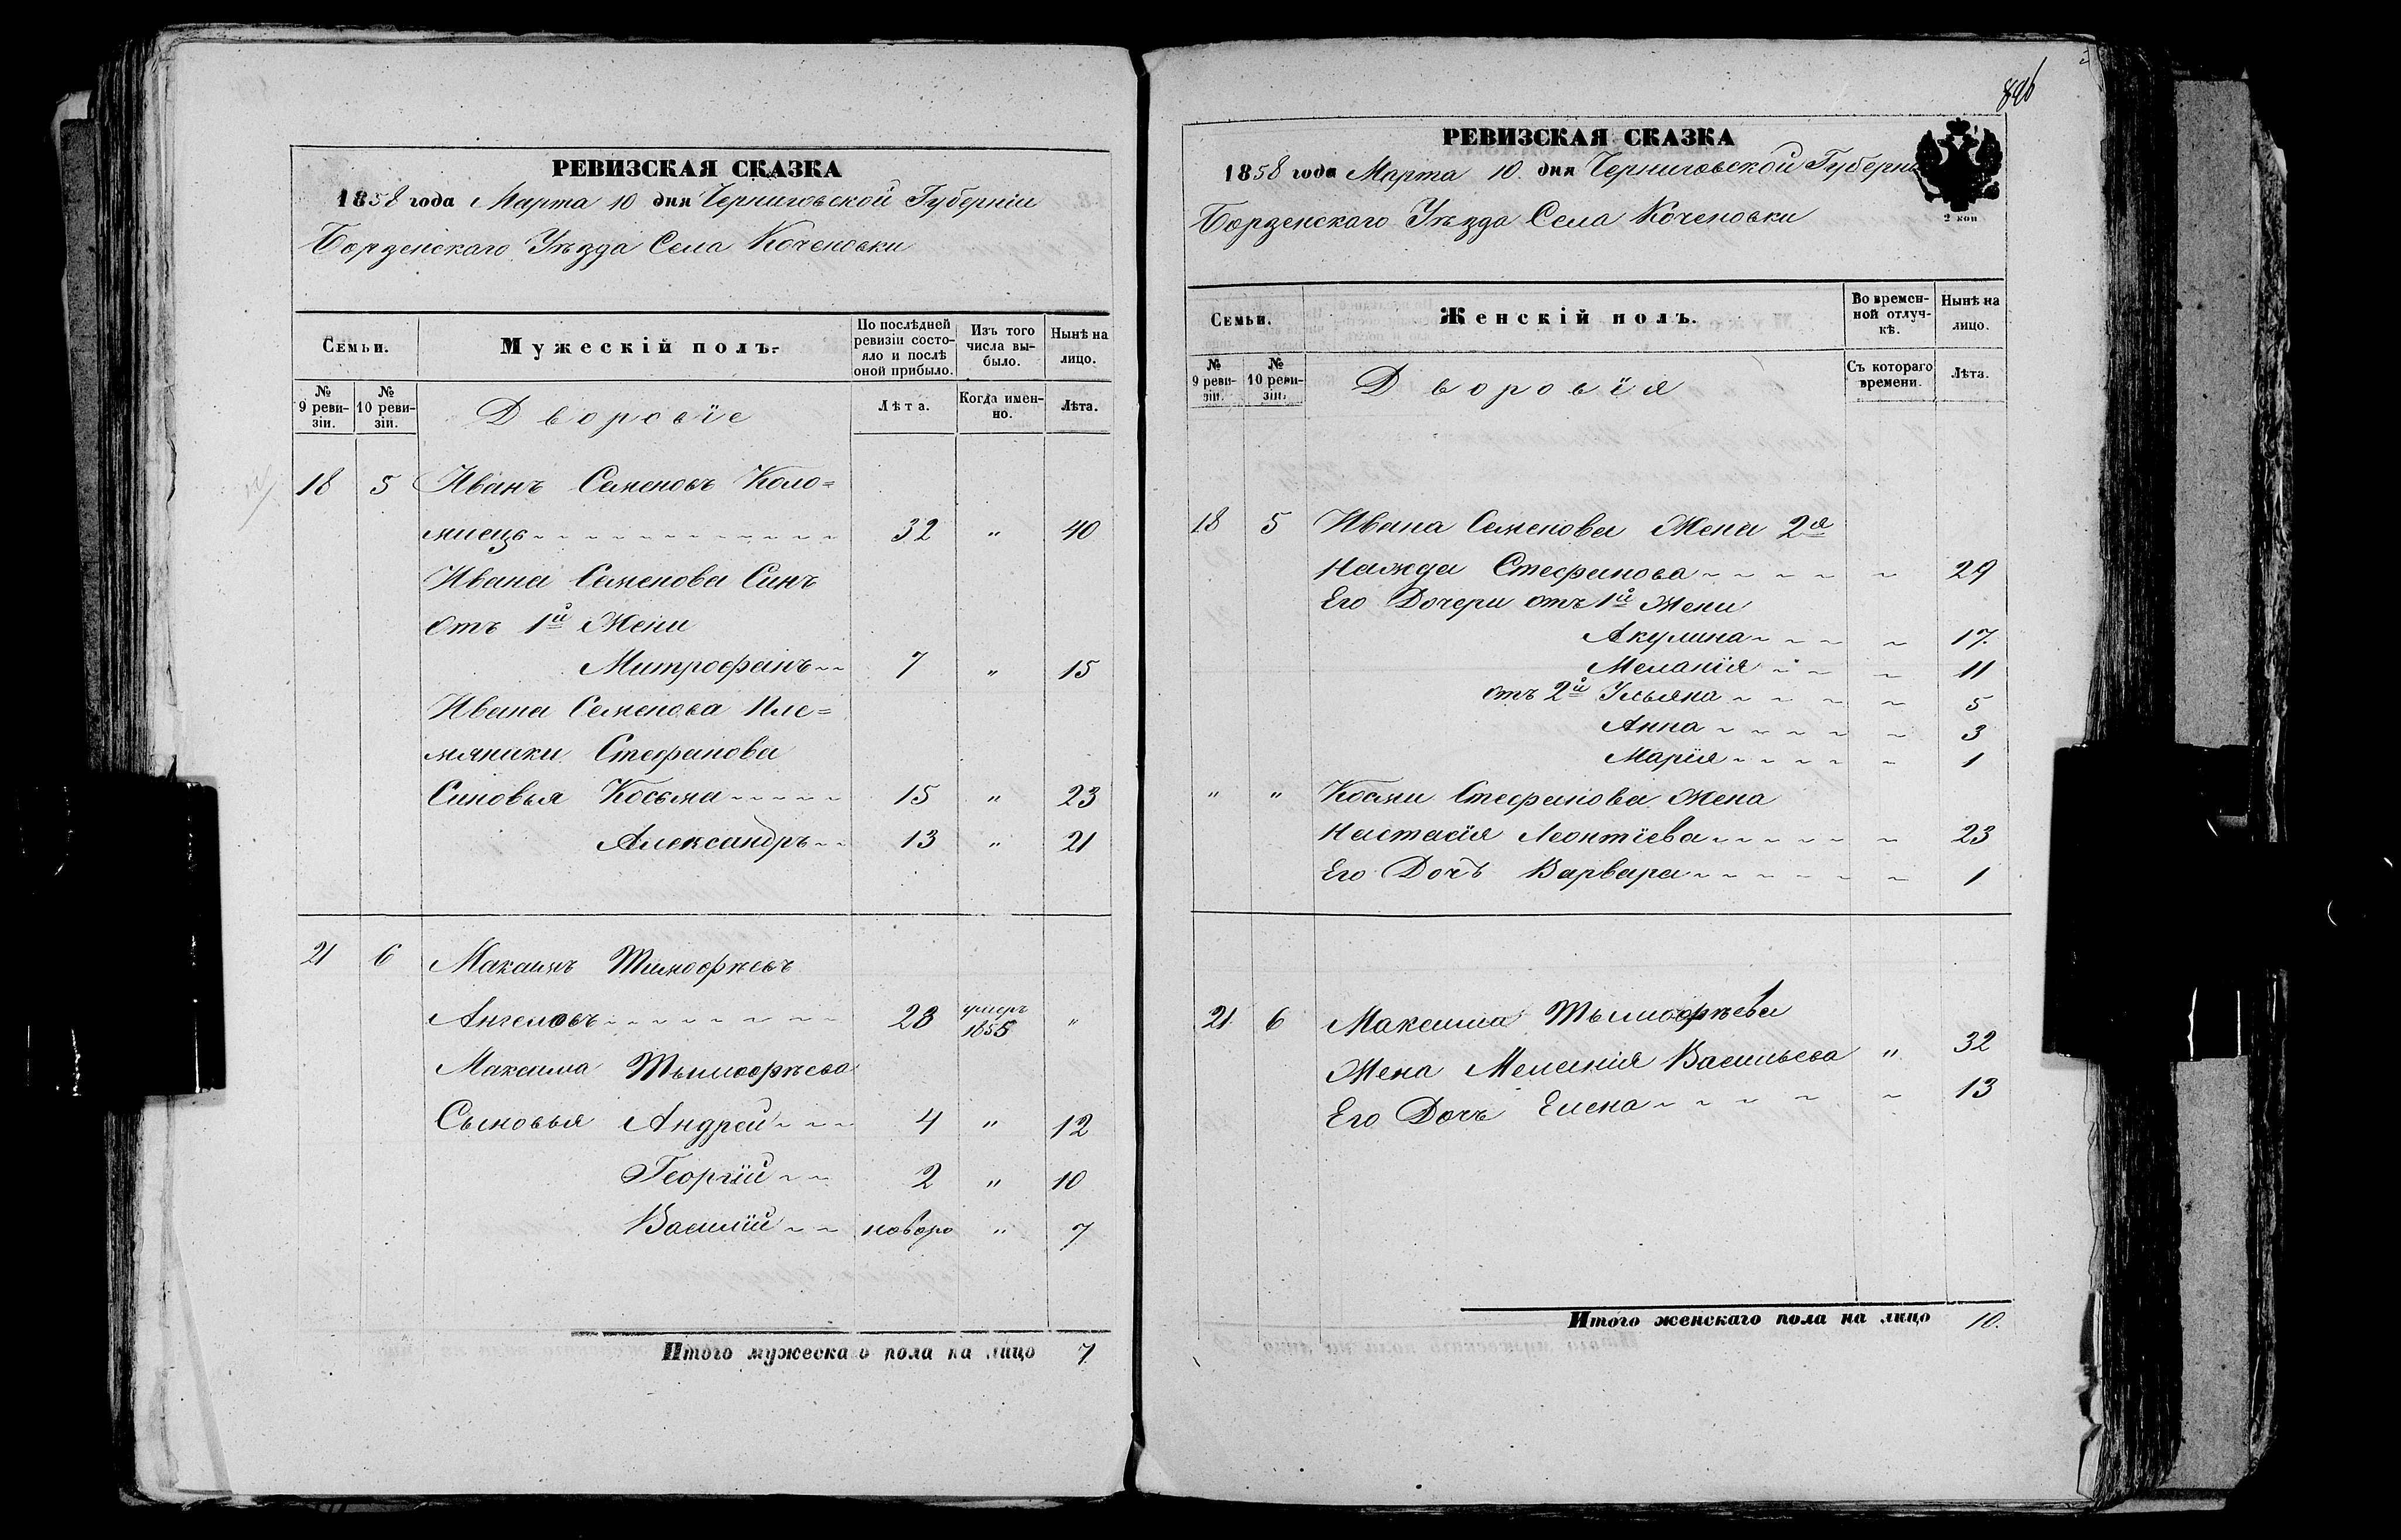 РЕВИЗСКАЯ СКАЗКА
1858 года Марта 10 дня Черниговской Губерніи
Борзенскаго Уѣзда Села Коченовки
Семьи.
Мужескій полъ.
По послѣдней ревизіи состояло и послѣ оной прибыло.
Изъ того числа выбыло.
Нынѣ на лицо.
№ 9 ревизіи.
№ 10 ревизіи.
Дворовіе
Лѣта.
Когда именно.
Лѣта.
18 5 Иванъ Семеновъ Коло=
миецъ 32 " 40
Ивана Семенова Синъ
отъ 1й Жени
Митрофанъ 7 " 15
Ивана Семенова Пле=
мяники Стефанова
Синовья Косьма 15 " 23
Александръ 13 " 21
21 6 Максимъ Тимофѣевъ
Ангеловъ 28 умеръ 1855 "
Максима Тымофѣева
Сыновья Андрей 4 " 12
Георгій 2 " 10
Василій новоро " 7
Итого мужескаго пола на лицо 7
846
РЕВИЗСКАЯ СКАЗКА
1858 года Марта 10 дня Черниговской Губерн
Борзенскаго Уѣзда Села Коченовки
2 коп
Семьи.
Женскій полъ.
Во временной отлучкѣ.
Нынѣ на лицо.
№ 9 ревизіи.
№ 10 ревизіи.
Дворовія
Съ котораго времени.
Лѣта.
18 5 Ивана Семенова Жена 2я
Надежда Стефанова 29
Его Дочери отъ 1й Жени
Акулина 17.
Меланія 11
отъ 2й Ульяна 5
Анна 3
Марія 1
" " Косми Стефанова Жена
Настасія Леонтіева 23
Его Дочъ Варвара 1
21 6 Максима Тымофѣева
Жена Меланія Васильева " 32
Его Дочъ Елена 13
Итого женскаго пола на лицо 10.